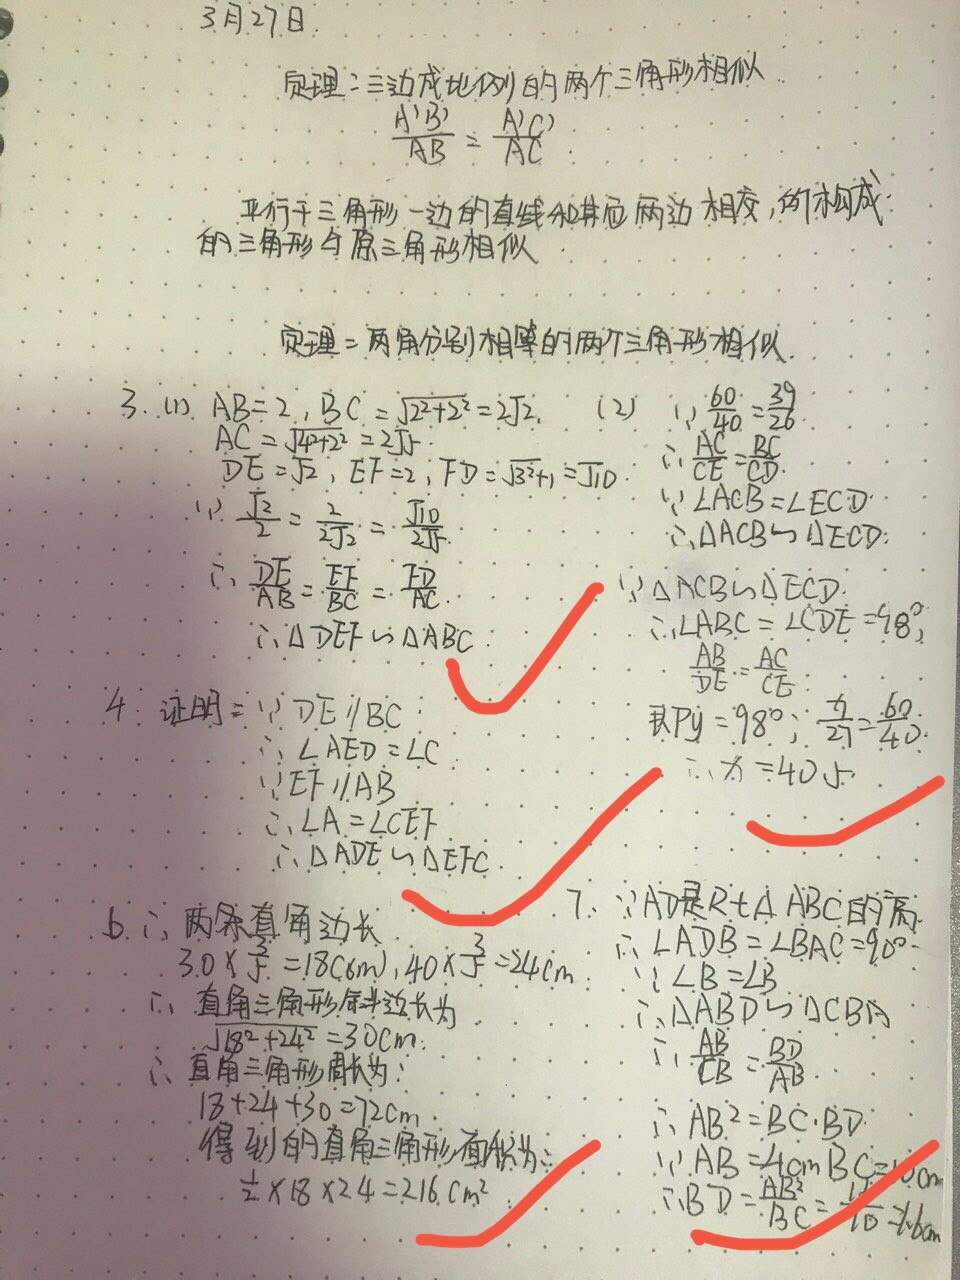 3月27日
定理:三边成比例的两个三角形相似.
A'B'/AB = A'C'/AC
平行于三角形一边的直线和其它两边相交,所构成
的三角形与原三角形相似
定理=两角分别相等的两个三角形相似.
3.(1) AB=2, BC=√(2²+2²)=2√2.
AC=√(4²+2²)=2√5.
DE=√2, EF=2, FD=√(3²+1)=√10.
∵ √2/2 = 2/2√2 = √10/2√5.
∴ DE/AB = EF/BC = FD/AC.
∴△DEF∽△ABC.
(2) ∵ 60/40 = 39/26
∴ AC/CE = BC/CD.
∵∠ACB=∠ECD.
∴△ACB∽△ECD.
∵△ACB∽△ECD.
∴∠ABC=∠CDE=98°,
AB/DE = AC/CE.
即y=98°; x/27 = 60/40.
∴x=40.5.
4. 证明=∵DE∥BC
∴∠AED=∠C
∵EF∥AB
∴∠A=∠CEF
∴△ADE∽△EFC.
6.∴两条直角边长
30×3/5=18(cm), 40×3/5=24cm
∴直角三角形斜边长为
√(18²+24²)=30cm.
∴直角三角形周长为:
18+24+30=72cm.
得到的直角三角形面积为:
1/2×18×24=216cm²
7. ∵AD是Rt△ABC的高.
∴∠ADB=∠BAC=90°.
∵∠B=∠B
∴△ABD∽△CBA
∴ AB/CB = BD/AB.
∴AB²=BC·BD
∵AB=4cm BC=10cm
∴BD = AB²/BC = /10 =1.6cm